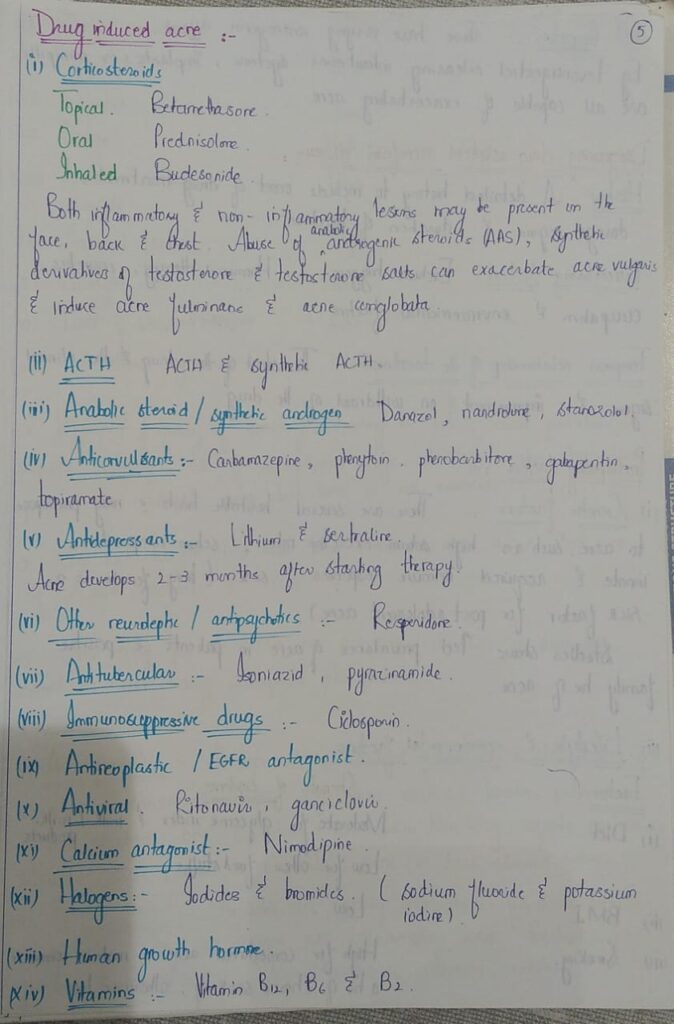 Drug induced acne :-
5
(i) Corticosteroids
Topical. Betamethasone.
Oral Prednisolone.
Inhaled Budesonide
Both inflammatory & non-inflammatory lesions may be present on the
face, back & chest. Abuse of anabolic androgenic steroids (AAS), synthetic
derivatives of testosterone & testosterone salts can exacerbate acne vulgaris
& induce acne fulminans & acne conglobata.
(ii) ACTH ACTH & synthetic ACTH.
(iii) Anabolic steroid / synthetic androgen Danazol, nandrolone, stanozolol
(iv) Anticonvulsants :- Carbamazepine, phenytoin. phenobarbitone, gabapentin,
topiramate
(v) Antidepressants :- Lithium & sertraline.
Acne develops 2-3 months after starting therapy.
(vi) Other neuroleptic / antipsychotics :- Resperidone.
(vii) Antitubercular :- Isoniazid, pyrazinamide.
(viii) Immunosuppressive drugs :- Ciclosporin.
(ix) Antineoplastic / EGFR antagonist.
(x) Antiviral. Ritonavir, ganciclovir.
(xi) Calcium antagonist :- Nimodipine.
(xii) Halogens :- Iodides & bromides. ( sodium fluoride & potassium
iodine).
(xiii) Human growth hormone.
(xiv) Vitamins :- Vitamin B12, B6 & B2.